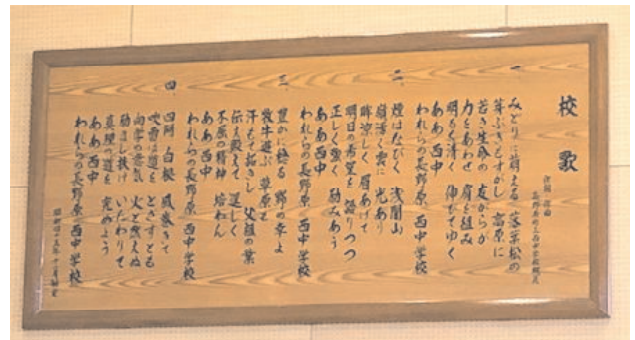 校歌
作詞 作曲
一、
みどりに萌える 落葉松の
芽ぶきもすがし 高原に
若き生命の 友がらが
力をあわせ 肩を組み
明るく清く 伸びてゆく
ああ 西中
われらの長野原 西中学校
二、
煙はなびく 浅間山
崩湧く雲に 光あり
眸涼しく 眉あげて
明日の希望を 語りつつ
正しく強く 励みあう
ああ 西中
われらの長野原 西中学校
三、
豊かに稔る 野の幸よ
牧牛遊ぶ 草原よ
汗もて拓きし 父祖の業
伝え殖えて 逞しく
不屈の精神 培わん
ああ 西中
われらの長野原 西中学校
四、
四阿 白根 風巻きて
吹雪は道を とざすとも
向学の意気 火と燃えぬ
励まし扶け いたわりて
真理の道を 究めよう
ああ 西中
われらの長野原 西中学校